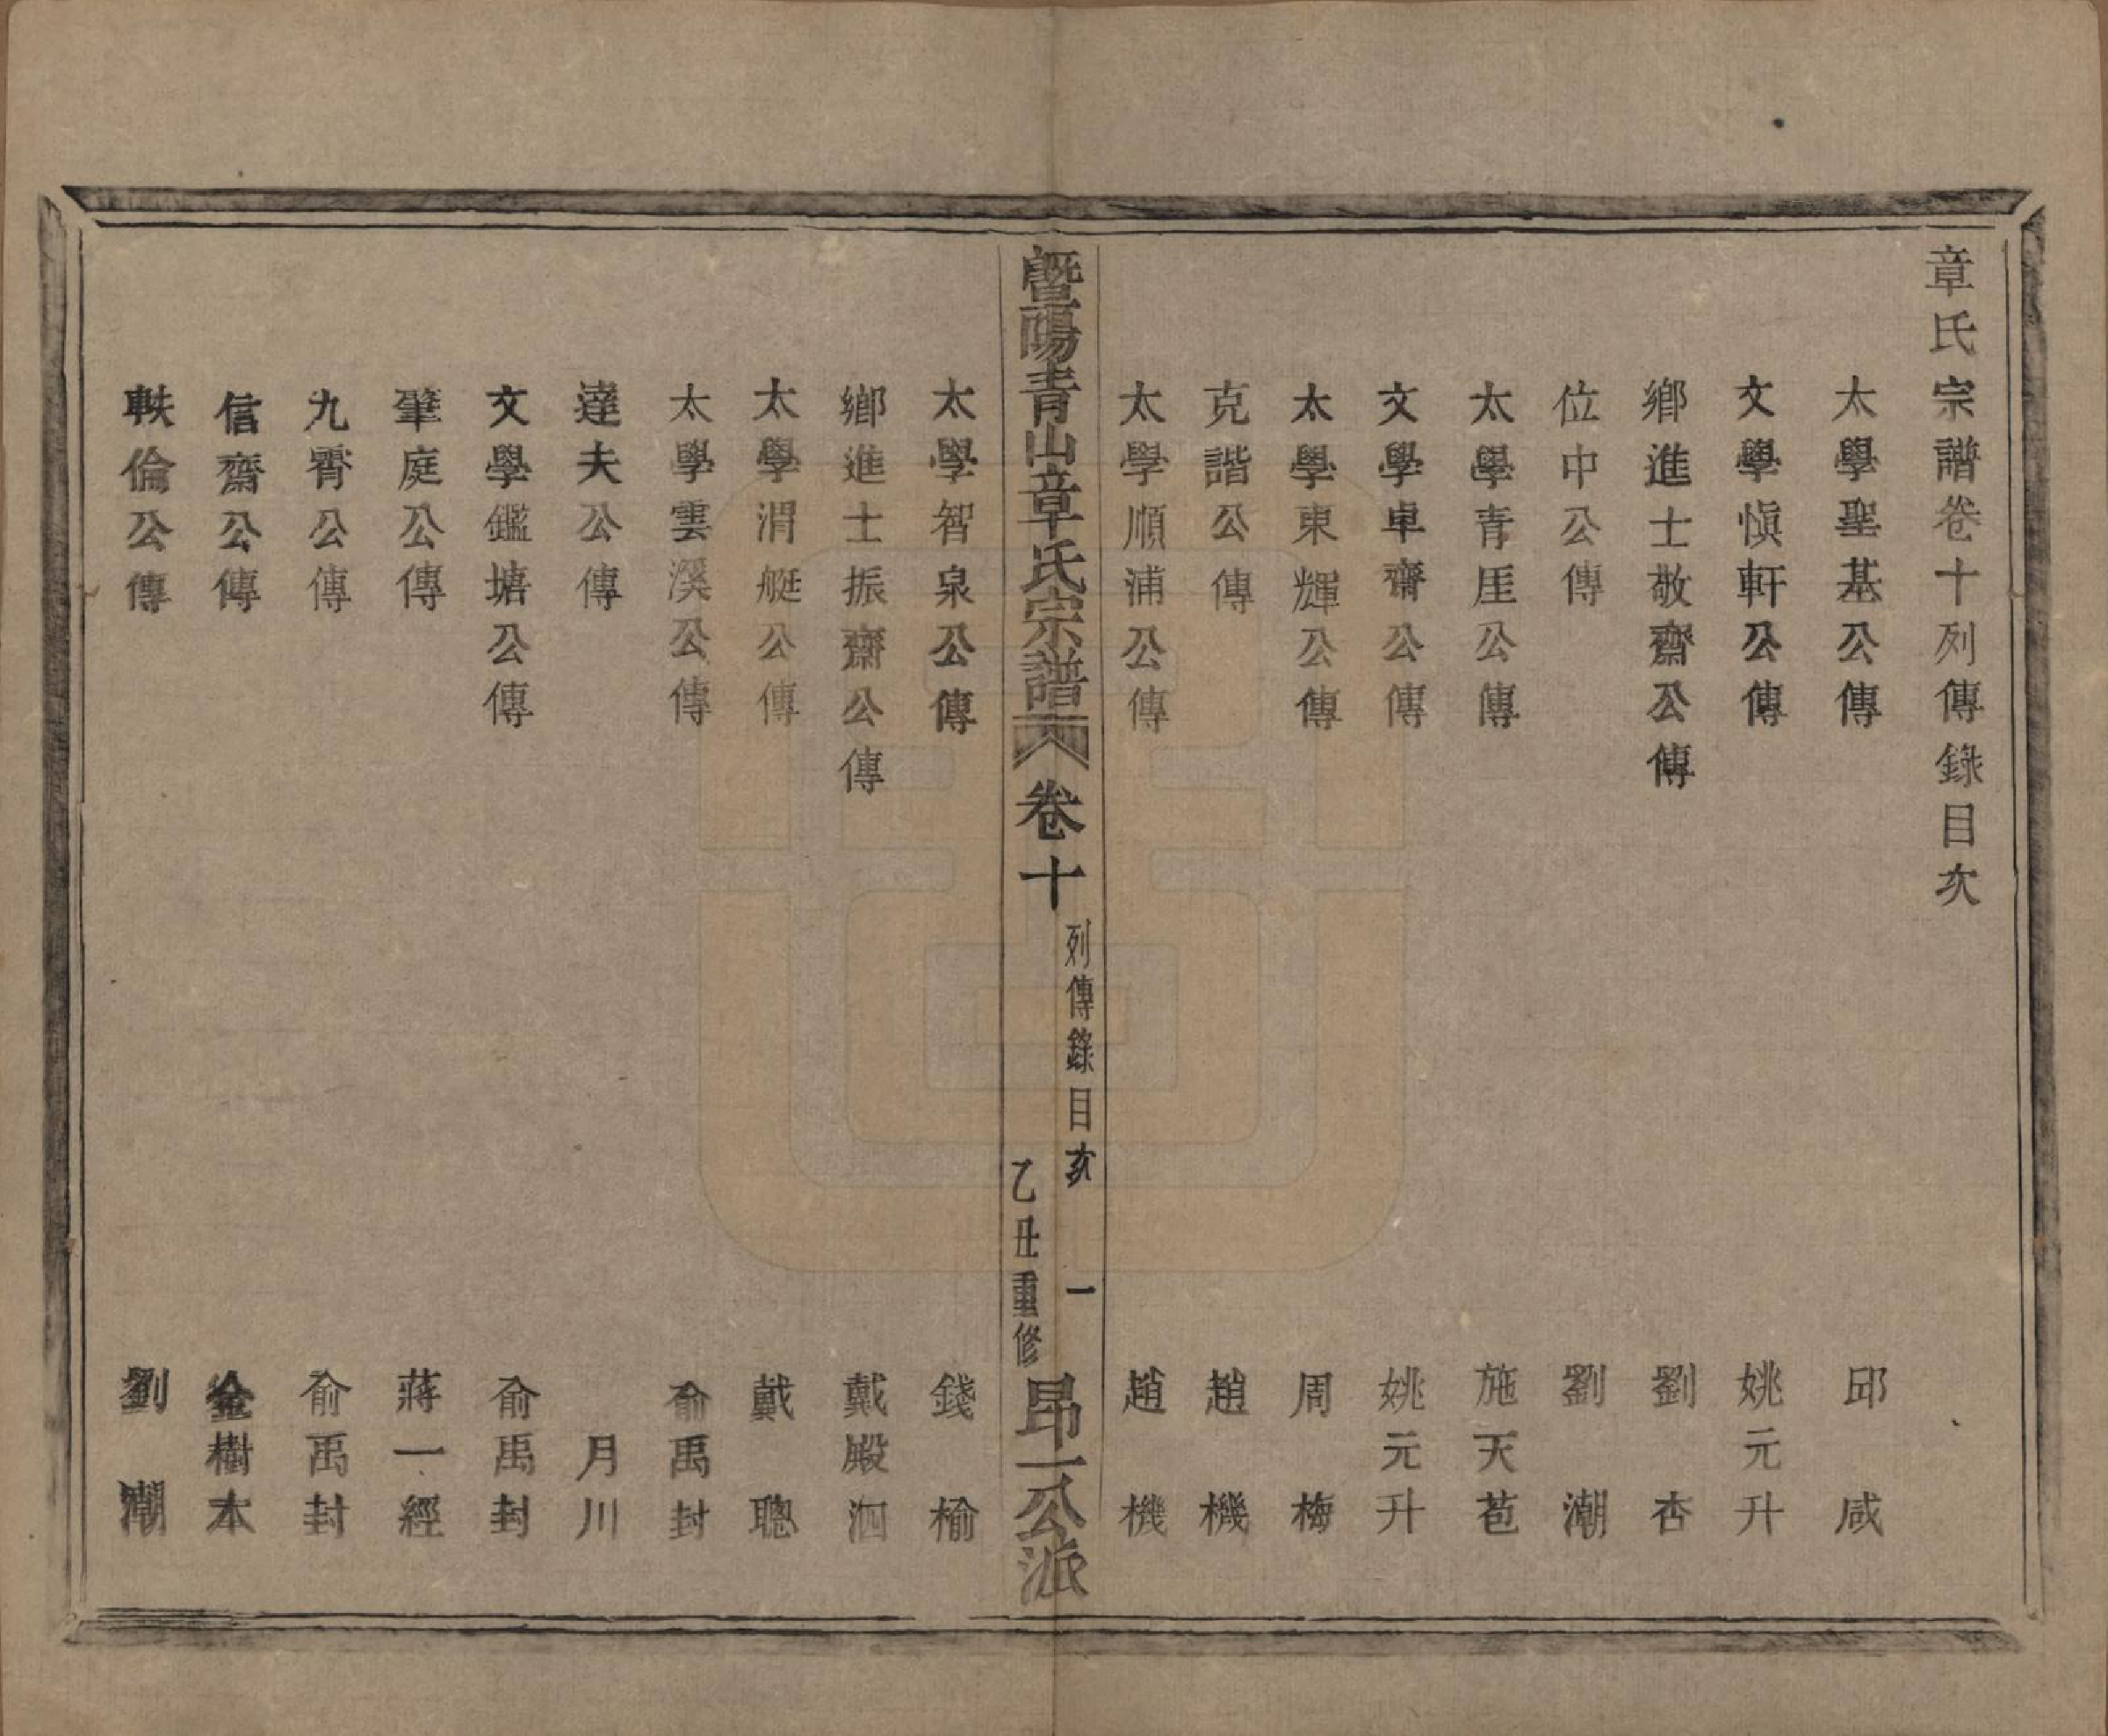 章氏宗譜卷十列傳錄目次
太學聖基公傳 邱咸
文學愼軒公傳 姚元升
鄉進士敬齋公傳 劉杏
位中公傳 劉潮
太學青厓公傳 施天苞
文學卓齋公傳 姚元升
太學東輝公傳 周梅
克諧公傳 趙機
太學順浦公傳 趙機
暨陽青山章氏宗譜 卷十 列傳錄目次 一 乙丑重修 昂一公派
太學智泉公傳 錢楡
鄉進士振齋公傳 戴殿泗
太學渭艇公傳 戴聰
太學雲溪公傳 俞禹封
達夫公傳 月川
文學鑑塘公傳 俞禹封
肇庭公傳 蔣一經
九霄公傳 俞禹封
信齋公傳 金樹本
軼倫公傳 劉潮